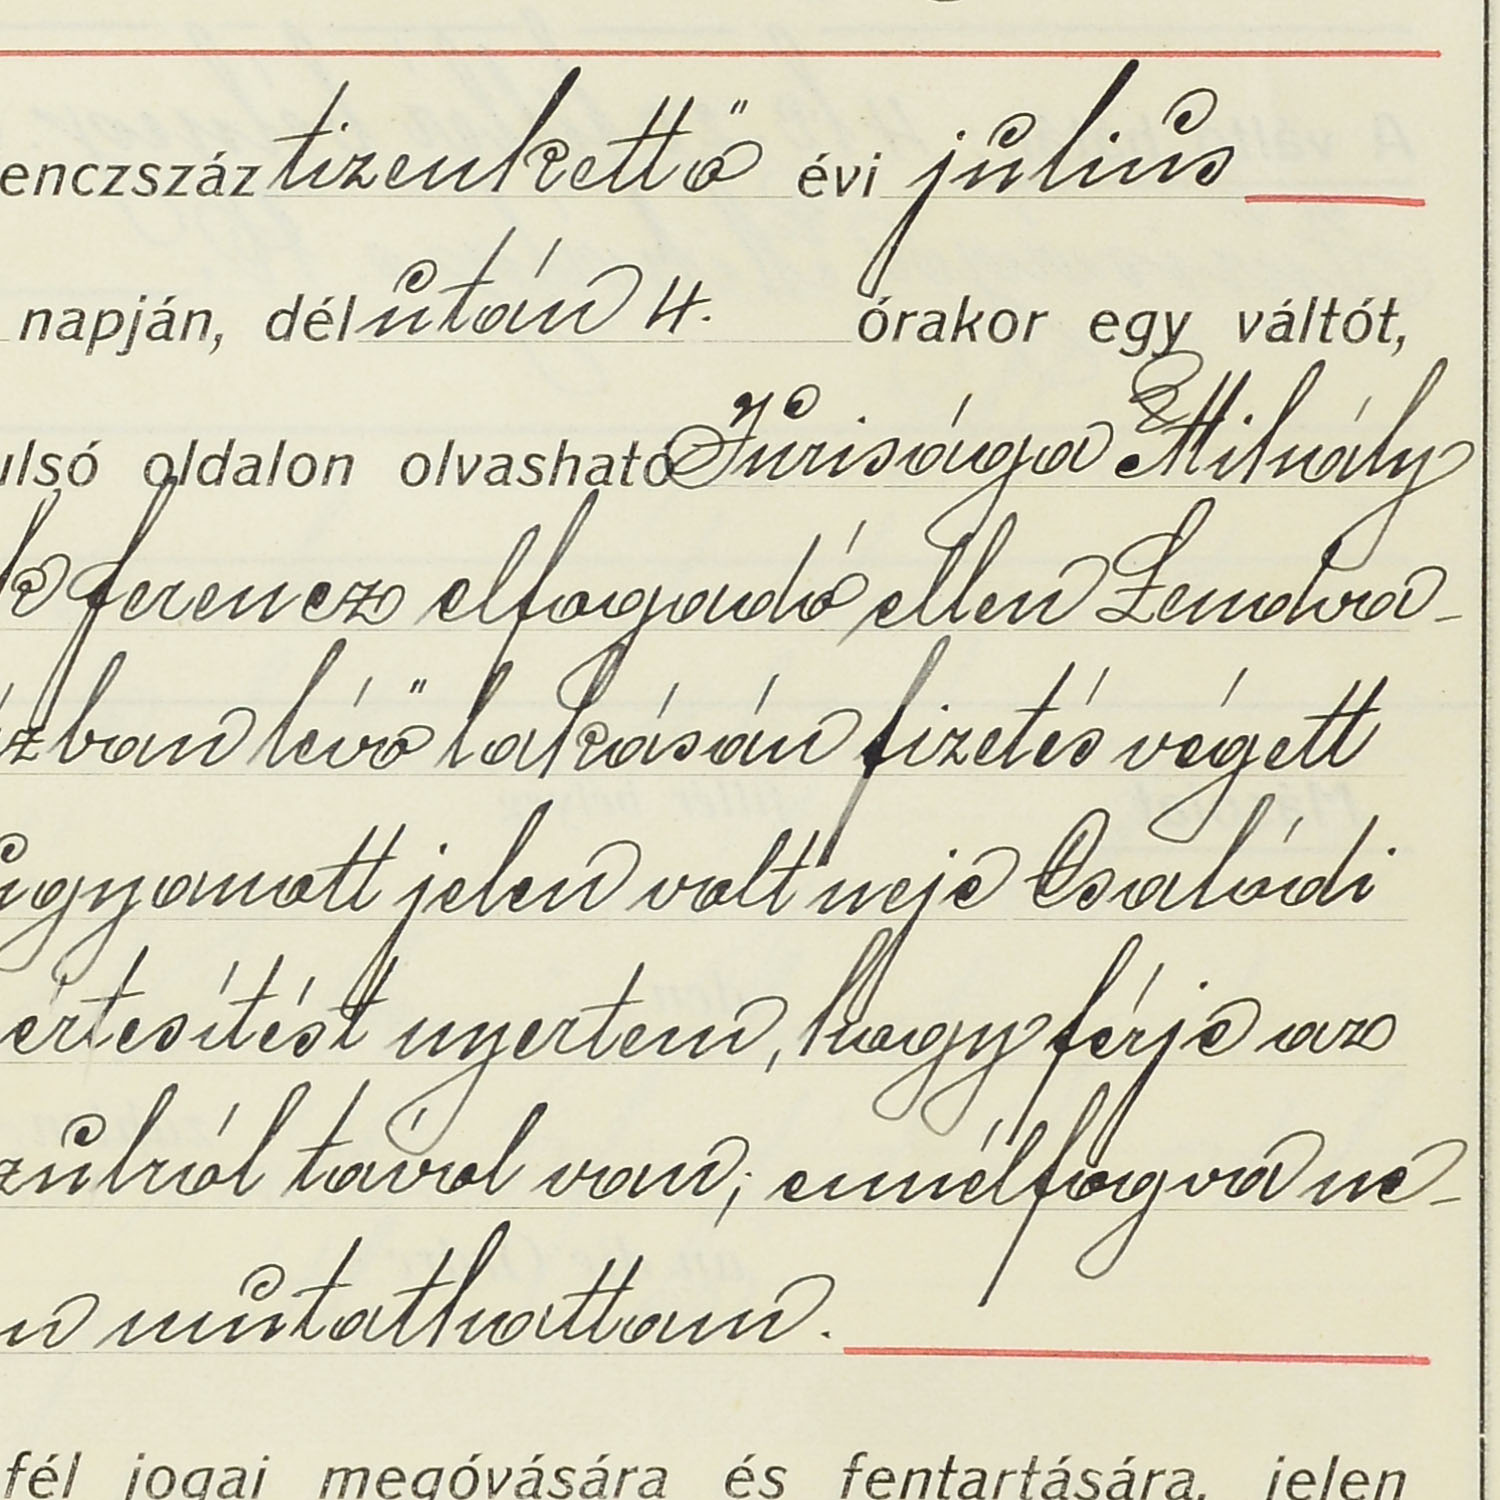 enczszáz tizenkettő évi július
napján, délután 4. órakor egy váltót,
ulsó oldalon olvasható Juriságá Mihály
ferencz elfogadó ellen Lendva-
zban lévő lakásán fizetés végett
ugyanott jelen volt neje Családi
értesítést nyertem, hogy férje az
zulról távol van; ennélfogva ne-
n mutathattam.
fél jogai megóvására és fentartására, jelen